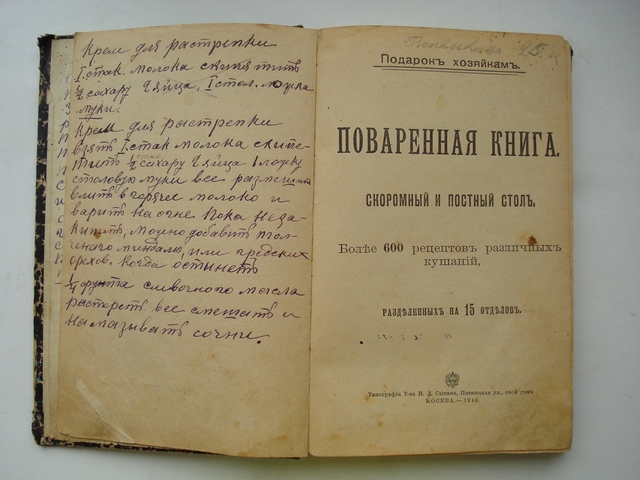 Крем для растрепки
1 стак. молока скипятить
½ сахару 2 яйца, 1 стол. ложка
муки.
Крем для растрепки
взять 1 стак молока скипе-
тить ½ стак сахару 2 яйца 1 ложку
столовую муки все размешат
влить в горячее молоко и
варить на огне пока неза-
кипит, можно добавить тол-
ченого миндалю, или грецких
орехов. Когда остынеть
¼ фунта сливочного масла
растереть все смешать и
намазывать сочни.
Подарокъ хозяйкамъ.
ПОВАРЕННАЯ КНИГА.
СКОРОМНЫЙ И ПОСТНЫЙ СТОЛЪ,
Болѣе 600 рецептовъ различныхъ
кушаній,
РАЗДѢЛЕННЫХЪ НА 15 ОТДѢЛОВЪ.
Типографія Т-ва И. Д. Сытина, Пятницкая ул., свой домъ
МОСКВА.—1910.